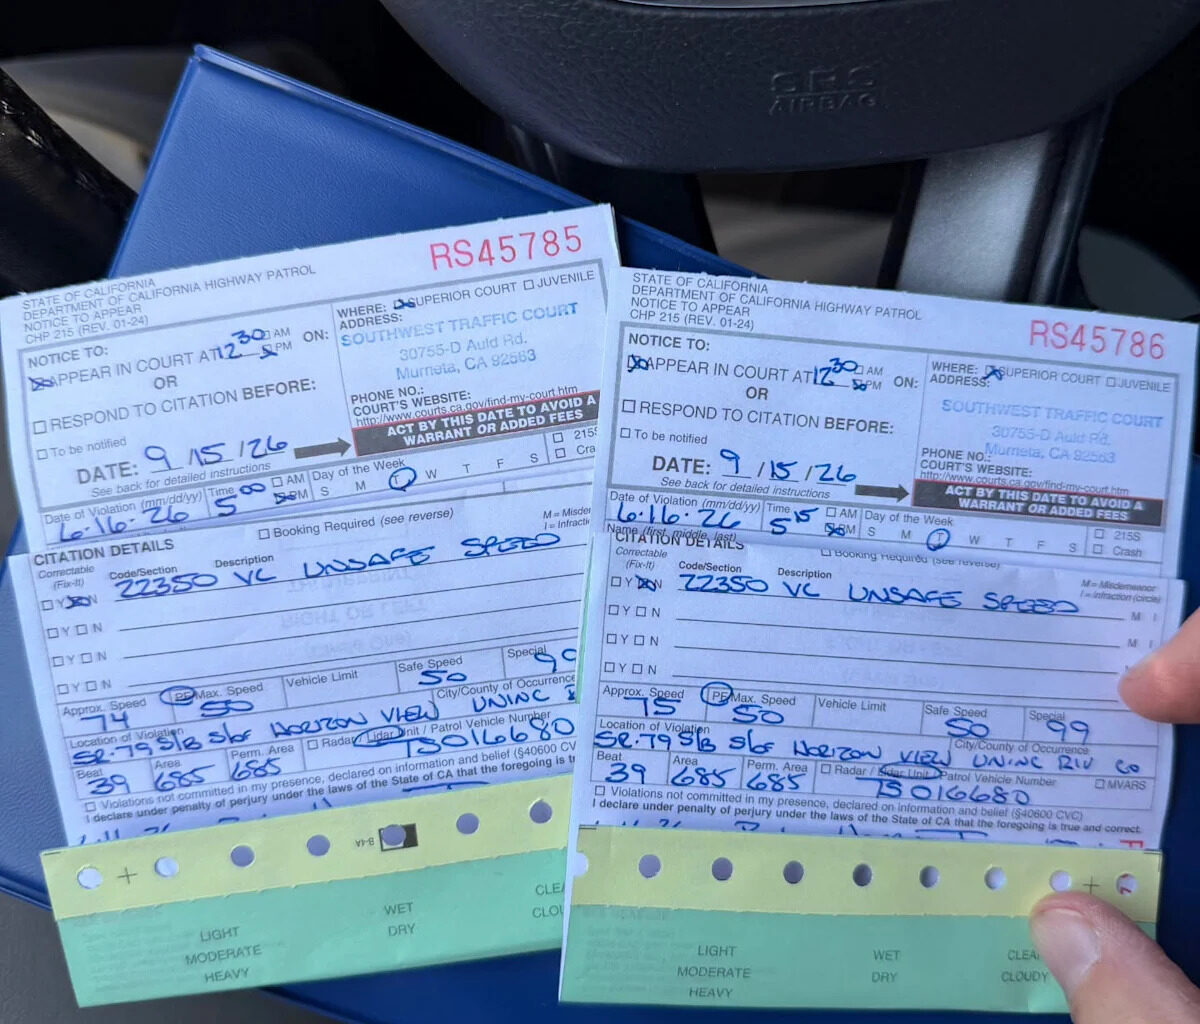 SRS
AIRBAG
RS45785
STATE OF CALIFORNIA
DEPARTMENT OF CALIFORNIA HIGHWAY PATROL
NOTICE TO APPEAR
CHP 215 (REV. 01-24)
NOTICE TO:
APPEAR IN COURT AT 12 30 AM PM ON:
OR
RESPOND TO CITATION BEFORE:
To be notified
DATE: 9/15/26
See back for detailed instructions
WHERE: SUPERIOR COURT JUVENILE
ADDRESS:
SOUTHWEST TRAFFIC COURT
30755-D Auld Rd.
Murrieta, CA 92563
PHONE NO.:
COURT'S WEBSITE:
http://www.courts.ca.gov/find-my-court.htm
ACT BY THIS DATE TO AVOID A
WARRANT OR ADDED FEES
Date of Violation (mm/dd/yy) Time AM PM Day of the Week
6.16.26 5 00 S M T W T F S
215S
Cra
CITATION DETAILS Booking Required (see reverse)
M = Misde
I = Infracti
Correctable
(Fix-It) Code/Section Description
Y N 22350 VC UNSAFE SPEED
Y N
Y N
Y N
Approx. Speed PF Max. Speed Vehicle Limit Safe Speed Special
74 50 50 99
Location of Violation City/County of Occurrence
SR.79 S/B S/OF HORIZON VIEW UNINC
Beat Area Perm. Area Radar / Lidar Unit / Patrol Vehicle Number
39 685 685 75016680
Violations not committed in my presence, declared on information and belief (§40600 CVC)
I declare under penalty of perjury under the laws of the State of CA that the foregoing is
B-1A
LIGHT
MODERATE
HEAVY
WET
DRY
CLEA
CLOU
RS45786
STATE OF CALIFORNIA
DEPARTMENT OF CALIFORNIA HIGHWAY PATROL
NOTICE TO APPEAR
CHP 215 (REV. 01-24)
NOTICE TO:
APPEAR IN COURT AT 12 30 AM PM ON:
OR
RESPOND TO CITATION BEFORE:
To be notified
DATE: 9/15/26
See back for detailed instructions
WHERE: SUPERIOR COURT JUVENILE
ADDRESS:
SOUTHWEST TRAFFIC COURT
30755-D Auld Rd.
Murrieta, CA 92563
PHONE NO.:
COURT'S WEBSITE:
http://www.courts.ca.gov/find-my-court.htm
ACT BY THIS DATE TO AVOID A
WARRANT OR ADDED FEES
Date of Violation (mm/dd/yy) Time AM PM Day of the Week
6.16.26 5 15 S M T W T F S
215S
Crash
Name (first, middle, last)
CITATION DETAILS Booking Required (see reverse)
Correctable
(Fix-It) Code/Section Description
M = Misdemeanor
I = Infraction (circle)
Y N 22350 VC UNSAFE SPEED M I
Y N M I
Y N
Y N
Approx. Speed PF Max. Speed Vehicle Limit Safe Speed Special
75 50 50 99
Location of Violation City/County of Occurrence
SR.79 S/B S/OF HORIZON VIEW UNINC RIV CO
Beat Area Perm. Area Radar / Lidar Unit / Patrol Vehicle Number MVARS
39 685 685 75016680
Violations not committed in my presence, declared on information and belief (§40600 CVC)
I declare under penalty of perjury under the laws of the State of CA that the foregoing is true and correct.
LIGHT
MODERATE
HEAVY
WET
DRY
CLEA
CLOUDY